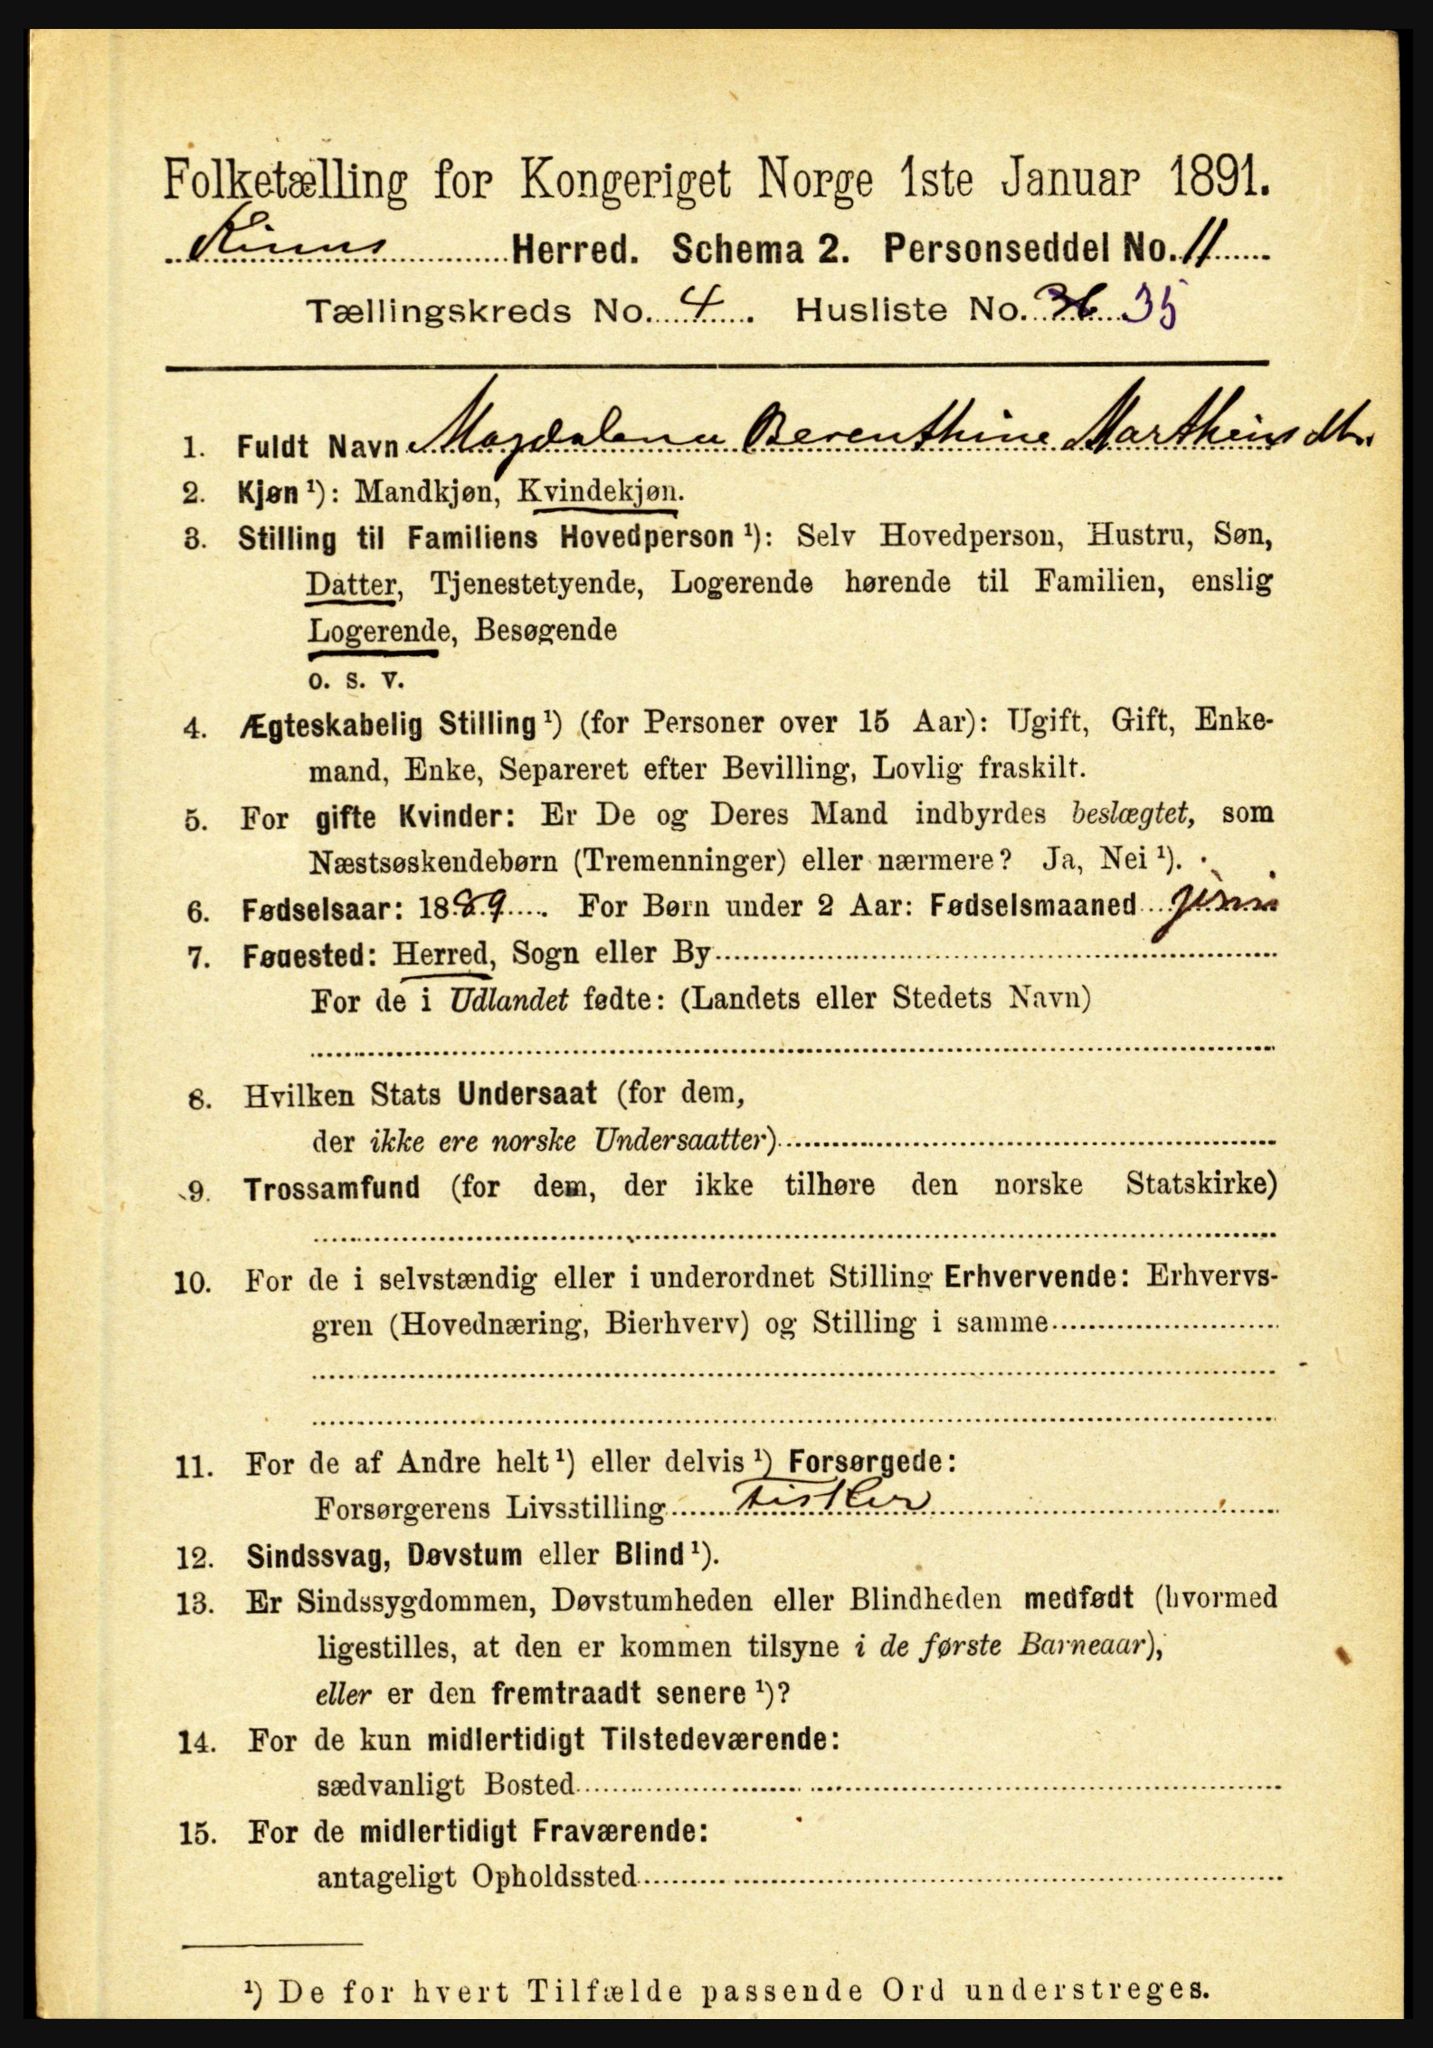 Folketælling for Kongeriget Norge 1ste Januar 1891.
Kinns Herred. Schema 2. Personseddel No. 11
Tællingskreds No. 4. Husliste No. 36 35
1. Fuldt Navn Magdalena Berenthine Marthins dtr.
2. Kjøn ¹): Mandkjøn, Kvindekjøn.
3. Stilling til Familiens Hovedperson ¹): Selv Hovedperson, Hustru, Søn,
Datter, Tjenestetyende, Logerende hørende til Familien, enslig
Logerende, Besøgende
o. s. v.
4. Ægteskabelig Stilling ¹) (for Personer over 15 Aar): Ugift, Gift, Enke-
mand, Enke, Separeret efter Bevilling, Lovlig fraskilt.
5. For gifte Kvinder: Er De og Deres Mand indbyrdes beslægtet, som
Næstsøskendebørn (Tremenninger) eller nærmere? Ja, Nei ¹).
6. Fødselsaar: 1889. For Børn under 2 Aar: Fødselsmaaned juni
7. Fødested: Herred, Sogn eller By
For de i Udlandet fødte: (Landets eller Stedets Navn)
8. Hvilken Stats Undersaat (for dem,
der ikke ere norske Undersaatter)
9. Trossamfund (for dem, der ikke tilhøre den norske Statskirke)
10. For de i selvstændig eller i underordnet Stilling Erhvervende: Erhvervs-
gren (Hovednæring, Bierhverv) og Stilling i samme
11. For de af Andre helt ¹) eller delvis ¹) Forsørgede:
Forsørgerens Livsstilling Fisker
12. Sindssvag, Døvstum eller Blind ¹).
13. Er Sindssygdommen, Døvstumheden eller Blindheden medfødt (hvormed
ligestilles, at den er kommen tilsyne i de første Barneaar),
eller er den fremtraadt senere ¹)?
14. For de kun midlertidigt Tilstedeværende:
sædvanligt Bosted
15. For de midlertidigt Fraværende:
antageligt Opholdssted
¹) De for hvert Tilfælde passende Ord understreges.